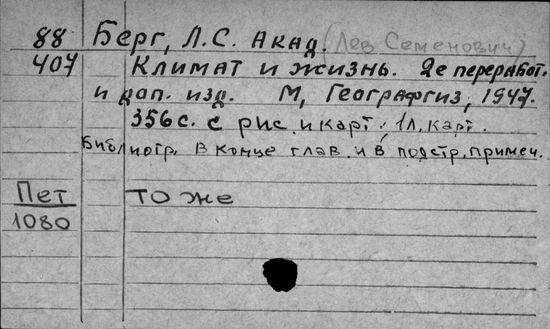 88 Берг, Л.С. Акад. (Лев Семенович)
407 Климат и жизнь. 2е переработ.
и доп. изд. М, Географгиз, 1947.
356с. с рис. и карт; 1л. карт.
Библиогр. в конце глав. и в подстр. примеч.
Пет то же
1080